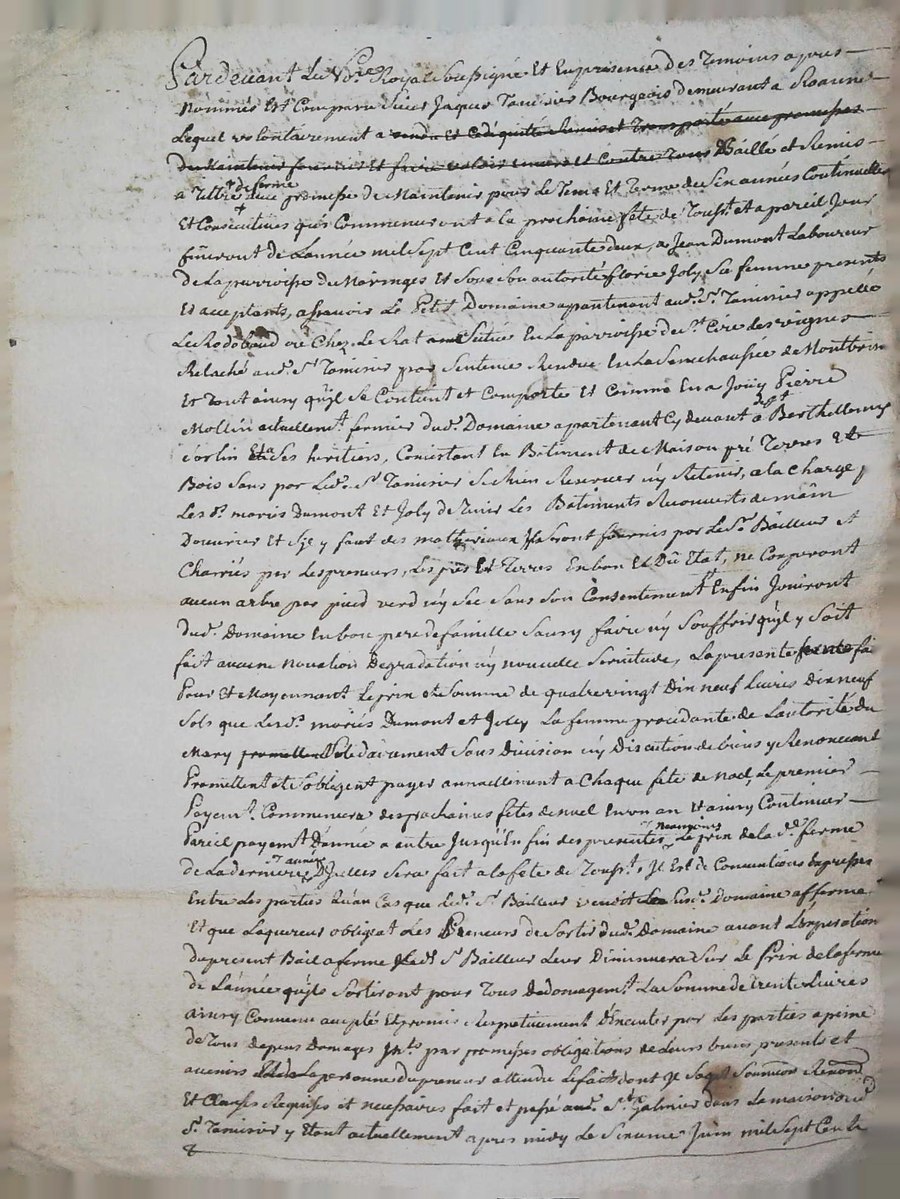 Pardevant Le Nore Royal Soussigné Et En presence Des Temoins apres
Nommés Est Comparu Sieur Jaques Tamisier Bourgeois demeurant a Roanne
Lequel volontairement a vendu Et Cedé quitté Remis et Transporté avec promesses
de Maintenir fournir Et faire valoir envers et Contre Tous Baillé et Remis
a Tiltre de ferme avec promesse de Maintenir pour Le Tems Et Terme de Six années Continuelles
Et Consecutives qui Commenceront a La prochaine fête de Toussts et a pareil Jour
finiront de L'année mil Sept Cent Cinquante deux, a Jean Dumont Laboureur
de La parroisse de Maringes Et Sous Son autorité florie Joly Sa femme presents
Et acceptants, assavoir Le Petit Domaine appartenant aud. Sr. Tamisier appellé
Le Rodobaud ou Chez Le Rat Situé En La parroisse de St Cire des vignes
Relaché aud. Sr. Tamisier par Sentence Rendue En La Senechaussée de Montbrison
Et Tout ainsy qu'il Se Contient et Comporte Et Comme En a Jouy Pierre
Mollin actuellemt. fermier dud. Domaine apartenant Cy devant a Berthellemy
Et a Ses heritiers, Consistant En Bâtiment de Maison pré Terres &
Bois Sans par Led. Sr. Tamisier Se Rien Reserver ny Retenir, a la Charge p
Les ds. mariés Dumont Et Joly de Tenir Les Bâtiments Recouverts de main
D'ouvrier Et S'il y faut des matheriaux Ils Seront fournis par Le Sr. Bailleur Et
Charriés par Les preneurs, Les prés Et Terres En bon Et Dû Etat, ne Couperont
aucun arbre par pied verd ny Sec Sans Son Consentement Enfin Jouiront
dud. Domaine En bon pere de famille Sans y faire ny Souffrir qu'il y Soit
fait aucune novation Degradation ny nouvelle Servitude, La presente ferme fai
Pour Et Moyennant Le prix Et Somme de quatre vingt Dix neuf Livres Dix neuf
Sols que Lesds. mariés Dumont et Joly La femme procedante de L'autorité du
Mary Solidairement Sans Division ny Discution de biens y Renonceant
Promettent et S'obligent payer annuellement a Chaque fête de noel, Le premier
Payemt. Commencera des prochaines fêtes de noel En un an Et ainsy Continuer
Pareil payemt. D'année a autre Jusqu'En fin des presentes neanmoins Le prix de la de. ferme
de La derniere année D'Icelles Sera fait a La fête de Tousst. Il Est de Conventions Expresses
Entre Les parties qu'au Cas que Led. Sr. Bailleur Domaine affermé
Et que L'aquereur obligeat Les Preneurs de Sortir dud. Domaine avant L'Expiration
du present Bail a ferme Led. Sr Bailleur Leur Diminuera Sur Le Prix de la ferme
de L'année qu'ils Sortiront pour Tous Dedomagemt. La Somme de trente Livres
ainsy Convenu accepté Et promis Respectivement D'Executer par Les parties a peine
de Tous depens Domages Ints par promesses obligations de Leurs biens presents et
avenirs La personne du preneur attendu Le fait dont Il S'agit Soumissions Renond
Et Clauses Requises et necessaires fait et passé aud. St. Galmier dans La maison dud.
Sr. Tamisier y Etant actuellement apres midy Le Sixieme Juin mil Sept Cent